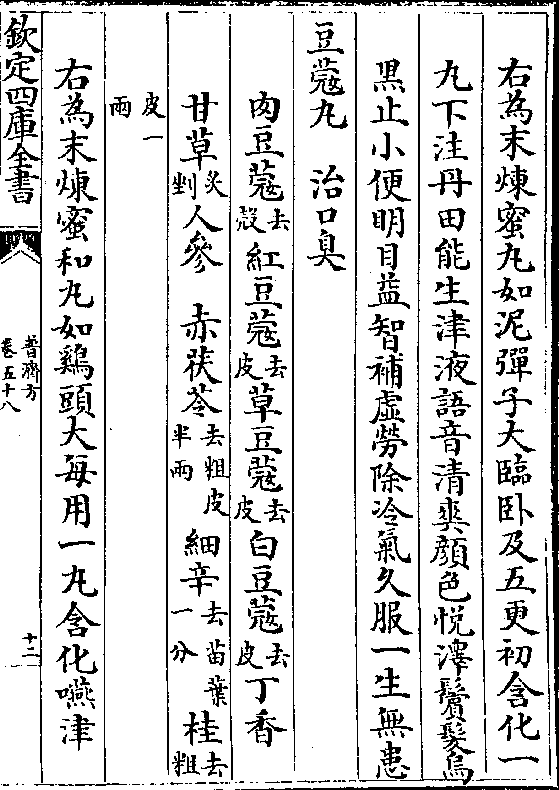 右為末煉蜜丸如泥彈子大臨卧及五更初含化一
丸下注丹田能生津液語音清爽顔色悦澤鬚髮烏
黒止小便明目益智補虛勞除冷氣久服一生無患
豆蔲丸　治口臭
肉豆蔲去殻紅豆蔲去皮草豆蔲去皮白豆蔲去皮丁香
甘草炙剉人參　赤茯苓去粗皮半兩細辛去苗葉一分桂去粗
皮一兩
右為末煉蜜和丸如鷄頭大每用一丸含化嚥津
欽定四庫全書
普濟方
卷五十八
十二